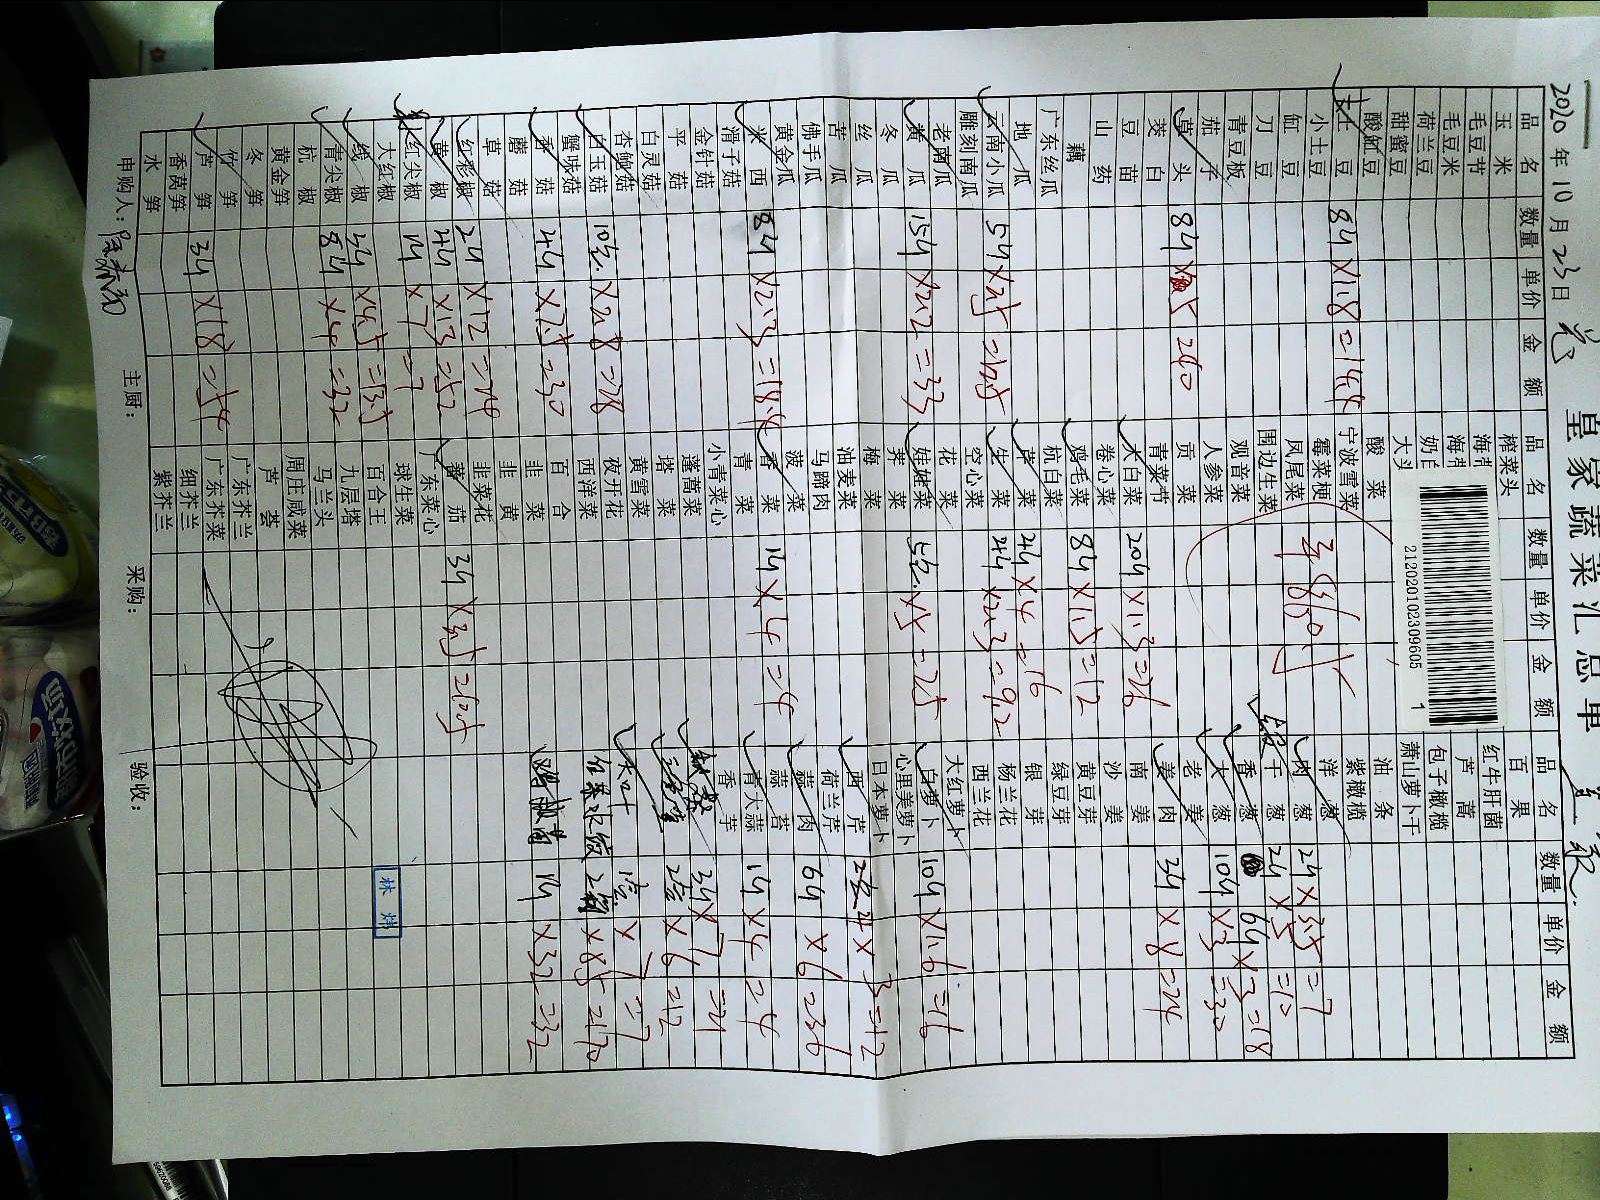 2020 年 10 月 23 日
皇家蔬菜汇总单
品 名 数量 单价 金 额 品 名 数量 单价 金 额 品 名 数量 单价 金 额
玉 米 榨菜头 百 果
毛豆节 海 红牛肝菌
毛豆米 海 芦 蒿
荷兰豆 奶 包子橄榄
甜蜜豆 大头 萧山萝卜干
酸豇豆 酸 菜 油 条
土 豆 8斤 ×1.8 =14.4 宁波雪菜 紫橄榄
小土豆 霉菜梗 洋 葱 2斤 ×3.5 =7
豇 豆 凤尾菜 肉 葱
刀 豆 围边生菜 干 葱 2斤 ×5 =10
青豆板 观音菜 香 葱 6斤 ×3 =18
茄 子 人参菜 大 葱 10斤 ×3 =30
草 头 8斤 ×5 =40 贡 菜 老 姜
茭 白 青菜节 姜 肉 3斤 ×8 =24
豆 苗 大白菜 20斤 ×1.3 =26 南 姜
山 药 卷心菜 沙 姜
藕 鸡毛菜 8斤 ×1.5 =12 黄豆芽
广东丝瓜 杭白菜 绿豆芽
地 瓜 芹 菜 4斤 ×4 =16 银 芽
云南小瓜 5斤 ×2.5 =12.5 生 菜 4斤 ×2.3 =9.2 杨兰花
雕刻南瓜 空心菜 西兰花
老南瓜 花 菜 大红萝卜
黄 瓜 15斤 ×2.2 =33 娃娃菜 ×5 =25 白萝卜 10斤 ×1.6 =16
冬 瓜 荠 菜 心里美萝卜
丝 瓜 梅 菜 日本萝卜
苦 瓜 油麦菜 西 芹 4斤 ×3 =12
佛手瓜 马蹄肉 荷兰芹
黄金瓜 菠 菜 蒜 肉 6斤 ×6 =36
米 西 8斤 ×2.3 =18.4 香 菜 1斤 ×4 =4 蒜 苔
滑子菇 青 菜 青大蒜 1斤 ×4 =4
金针菇 小青菜心 香 芋
平 菇 蓬蒿菜 3斤 ×7 =21
白灵菇 塔 菜 ×6 =12
杏鲍菇 黄雪菜 ×7 =7
白玉菇 10包 ×2.8 =28 夜开花 ×85 =170
蟹味菇 西洋菜
香 菇 4斤 ×7.5 =30 百 合 1斤 ×32 =32
蘑 菇 韭 菜
草 菇 韭 黄
红彩椒 2斤 ×12 =24 韭菜花
黄 椒 4斤 ×13 =52 番 茄 3斤 ×3.5 =10.5
红尖椒 1斤 ×7 =7 广东菜心
大红椒 球生菜
线 椒 3斤 ×4.5 =13.5 百合王
青尖椒 8斤 ×4 =32 九层塔
杭 椒 马兰头
黄金笋 周庄咸菜
冬 笋 芦 荟
竹 笋 广东芥兰
芦 笋 3斤 ×18 =54 广东芥菜
香莴笋 细芥兰
水 笋 紫芥兰
21202010230960​5 1
林 炜
申购人： 主厨： 采购： 验收：